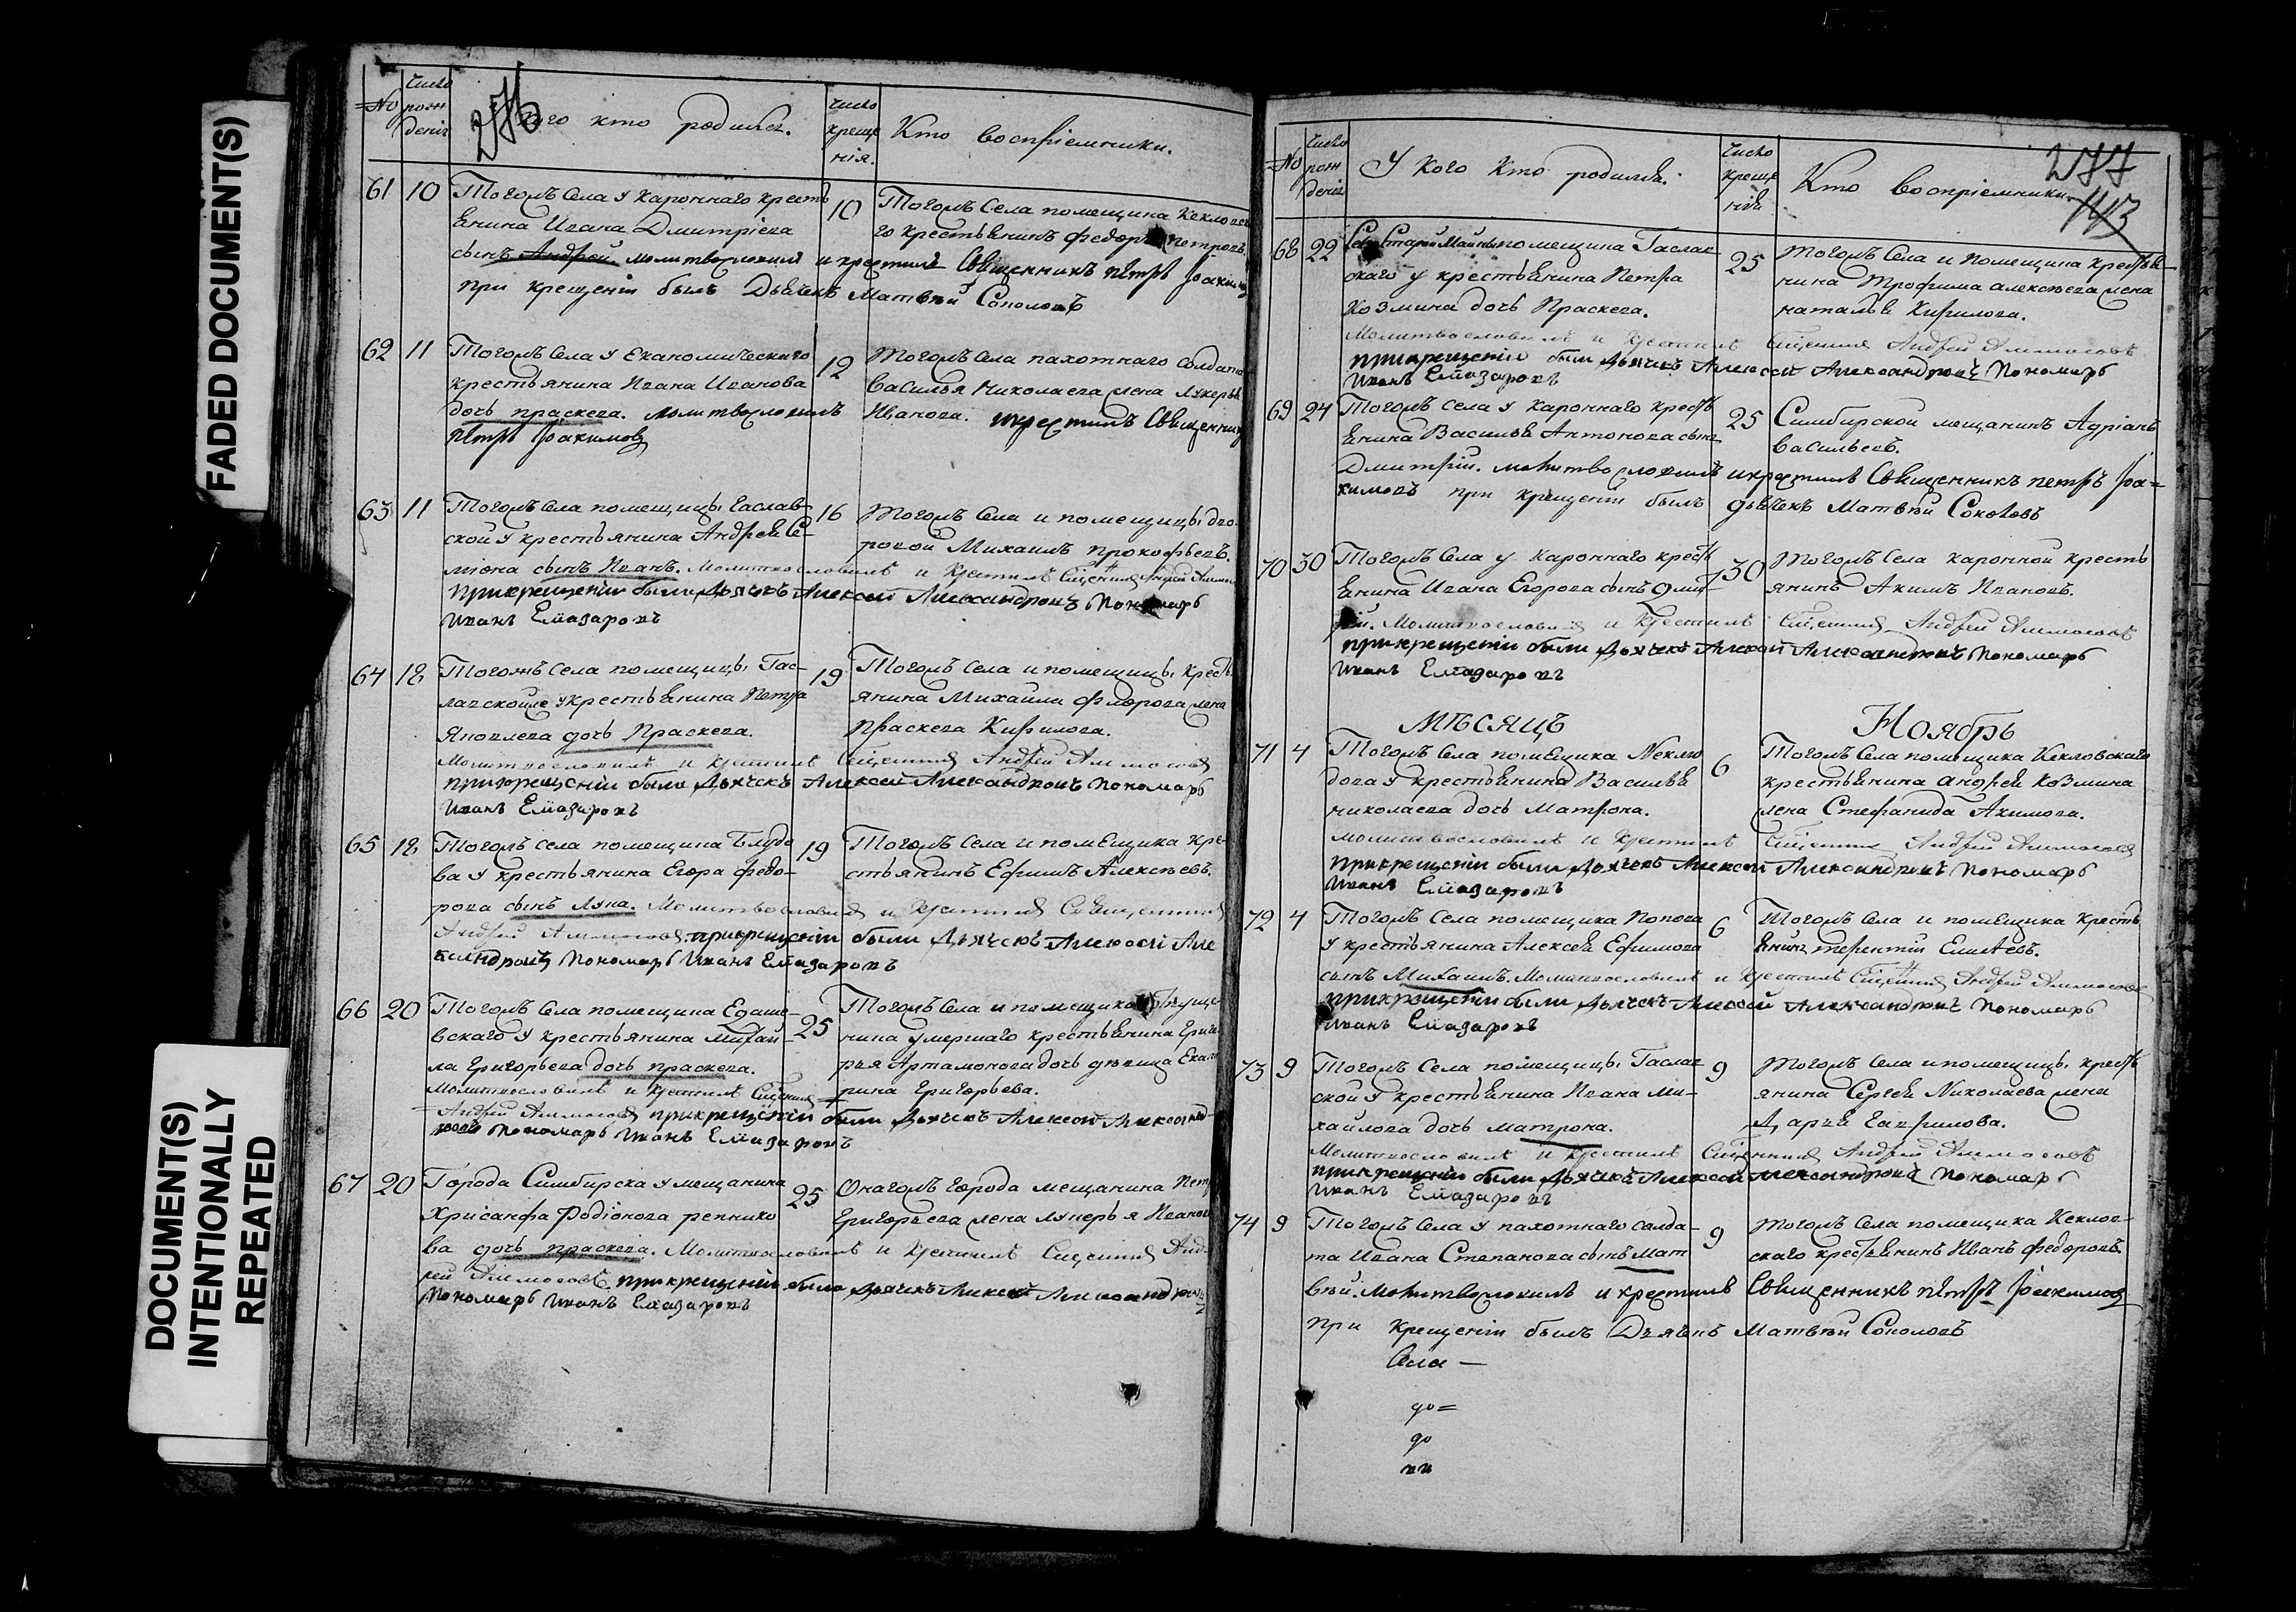 FADED DOCUMENT(S)
DOCUMENT(S)
INTENTIONALLY
REPEATED
276
№
Число рождения
кого кто родился.
Число крещенія.
Кто воспріемники.
61 10 Тогожъ Села у Кароннаго кресть
янина Ивана Дмитріева
сынъ Андрей. молитвословилъ и крестилъ Священникъ Петръ Іоакимовъ
при крещеніи былъ Дьячекъ Матвѣй Соколовъ
10 Тогожъ Села помещика
го крестьянинъ Федоръ Петровъ
62 11 Тогожъ Села у Екакомическаго
крестьянина Ивана Иванова
дочь Праскева. молитвословилъ и крестилъ Священникъ
Петръ Іоакимовъ
12 Тогожъ Села пахотнаго Солдата
Василья Николаева жена Лукерья
Иванова.
63 11 Тогожъ Села помещицы Гаслав
ской у крестьянина Андрея Се-
міона сынъ Иванъ. Молитвословилъ и крестилъ Священникъ Андрей
при крещеніи были Дьячекъ Алексей Александровъ Пономарь
Иванъ Елиазаровъ
16 Тогожъ Села и помещицы дво-
ровой Михаилъ Прокофьевъ.
64 18 Тогожъ Села помещицы Гас-
лавской у крестьянина Петра
Яковлева дочь Праскева.
Молитвословилъ и крестилъ Священникъ Андрей
при крещеніи были Дьячекъ Алексей Александровъ Пономарь
Иванъ Елиазаровъ
19 Тогожъ Села и помещицы Кресть
янина Михаила Флорова жена
Праскева Кирилова.
65 18 Тогожъ Села помещика Блудо
ва у крестьянина Егора Федо-
рова сынъ Лука. Молитвословилъ и крестилъ Священникъ
Андрей при крещеніи были Дьячекъ Алексей Але
ксандровъ Пономарь Иванъ Елиазаровъ
19 Тогожъ Села и помещика Кре-
стьянинъ Ефимъ Алексеевъ.
66 20 Тогожъ Села помещика
вскаго у крестьянина Михай-
ла Григорьева дочь Праскева.
Молитвословилъ и крестилъ Священникъ
Андрей при крещеніи были Дьячекъ Алексей Александ-
ровъ Пономарь Иванъ Елиазаровъ
25 Тогожъ Села и помещика
умершаго крестьянина Григо
рья Артамонова дочь девица Екате
рина Григорьева.
67 20 Города Симбирска у мещанина
Хрисанфа Родіонова
ва дочь Праскева. Молитвословилъ и крестилъ Священникъ Анд-
рей при крещеніи были Дьячекъ Алексей Александровъ
Пономарь Иванъ Елиазаровъ
25 Онагожъ города мещанина Петра
Григорьева жена Лукерья Иванова
277
143
№
Число рожденія
У Кого Кто родился.
Число крещенія
Кто воспріемники
68 22 Села Старой Майны помещика Гаслав
скаго у крестьянина Петра
Козмина дочь Праскева.
Молитвословилъ и крестилъ Священникъ Андрей
при крещеніи были Дьячекъ Алексей Александровъ Пономарь
Иванъ Елиазаровъ
25 Тогожъ Села и помещика крестья
нина Трофима Алексеева жена
Наталья Кирилова.
69 24 Тогожъ Села у Кароннаго кресть
янина Василья Антонова сынъ
Дмитрій. молитвословилъ и крестилъ Священникъ Петръ Іоа=
кимовъ при крещеніи былъ дьячекъ Матвѣй Соколовъ
25 Симбирской мещанинъ Адріанъ
Васильевъ.
70 30 Тогожъ Села у Кароннаго кресть
янина Ивана Егорова сынъ Дмит
рій. Молитвословилъ и крестилъ Священникъ Андрей
при крещеніи были Дьячекъ Алексей Александровъ Пономарь
Иванъ Елиазаровъ
30 Тогожъ Села каронной кресть
янинъ Акимъ Ивановъ.
МѢСЯЦЪ Ноябрь
71 4 Тогожъ Села помещика Неклю
дова у крестьянина Василья
Николаева дочь Матрона.
молитвословилъ и крестилъ Священникъ Андрей
при крещеніи были Дьячекъ Алексей Александровъ Пономарь
Иванъ Елиазаровъ
6 Тогожъ Села помещика
крестьянина Андрея Козмина
жена Стефанида Акимова.
72 4 Тогожъ Села помещика Попова
у крестьянина Алексея Ефимова
сынъ Михаилъ. Молитвословилъ и крестилъ Священникъ Андрей
при крещеніи были Дьячекъ Алексей Александровъ Пономарь
Иванъ Елиазаровъ
6 Тогожъ Села и помещика Кресть
янинъ Терентій
73 9 Тогожъ Села помещицы Гаслав
ской у крестьянина Ивана Ми-
хайлова дочь Матрона.
Молитвословилъ и крестилъ Священникъ Андрей
при крещеніи были Дьячекъ Алексей Александровъ Пономарь
Иванъ Елиазаровъ
9 Тогожъ Села и помещицы кресть
янина Сергея Николаева жена
Дарья Гаврилова.
74 9 Тогожъ Села у пахотнаго солда-
та Ивана Степанова сынъ Мат
вѣй. Молитвословилъ и крестилъ Священникъ Петръ Іоакимовъ
при крещеніи былъ Дьячекъ Матвѣй Соколовъ
9 Тогожъ Села помещика
скаго крестьянинъ Иванъ Федоровъ.
Села —
до=
до